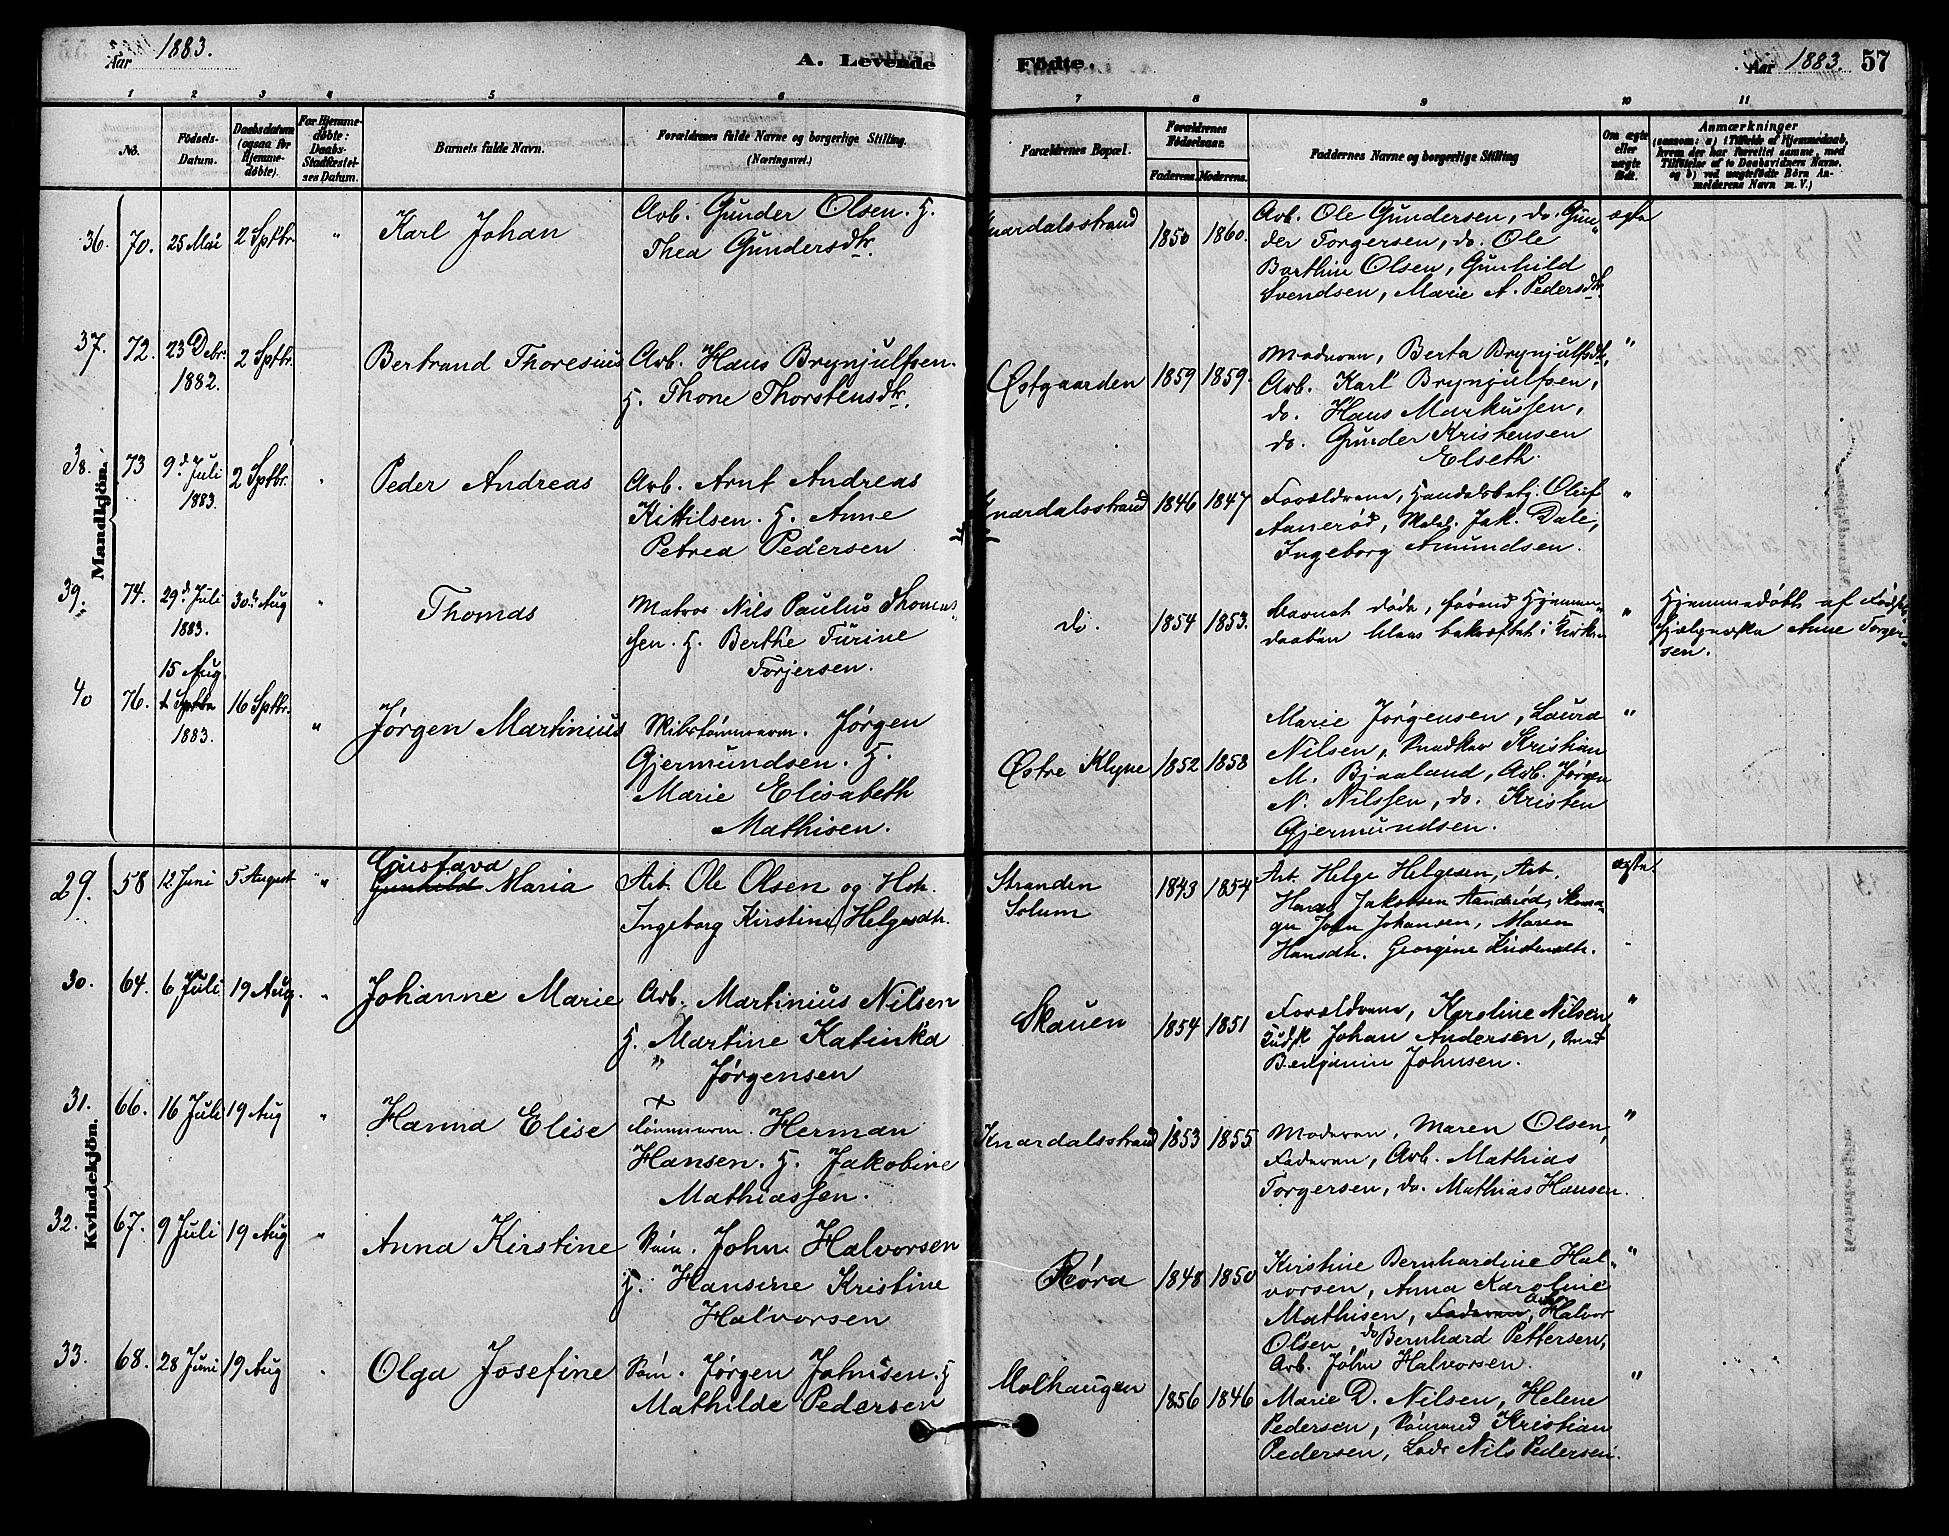 Aar 1883.
A. Levende
Födte.
Aar 1883. 57
1 2 3 4 5 6 7 8 9 10 11
No.
Födsels-
Datum.
Daabsdatum
(ogsaa for
Hjemme-
döbte).
For Hjemme-
döbte:
Daabs-
Stadfæstel-
ses Datum.
Barnets fulde Navn.
Forældrenes fulde Navne og borgerlige Stilling.
(Næringsvei.)
Forældrenes Bopæl.
Forældrenes
Födselsaar.
Faderens. Moderens.
Faddernes Navne og borgerlige Stilling
Om ægte
eller
uægte
födt.
Anmærkninger
(saasom: a) i Tilfælde af Hjemmedaab,
hvem der har forrettet samme, med
Tilföielse af to Daabsvidners Navne,
og b) ved uægtefödte Börn An-
melderens Navn m. V.)
Mandkjön.
36. 70. 25 Mai 2 Sptbr. "
Karl Johan
Arb. Gunder Olsen. H.
Thea Gundersdtr.
Knardalsstrand 1850 1860.
Arb. Ole Gundersen, do. Gun-
der Torgersen, do. Ole
Barthin Olsen, Gunhild
Svendsen, Marie A. Pedersdtr.
ægte
37. 72. 23 Debr. 2 Sptbr.
1882.
Bertrand Thoresius
Arb. Hans Brynjulfsen.
H. Thone Thorstensdtr.
Østgaarden 1859 1859.
Moderen, Berta Brynjulfsdtr,
Arb. Karl Brynjulfsen,
do. Hans Markussen,
do. Gunder Kristensen
Elseth.
"
38. 73 9d Juli 2 Sptbr. "
1883.
Peder Andreas
Arb. Arnt Andreas
Kittilsen. H. Anne
Petrea Pedersen
Knardalsstrand 1846 1847
Forældrene, Handelsbetj. Oluf
Aanerød, Jak. Dale,
Ingeborg Amundsen.
"
39. 74. 29d Juli 30. Aug "
1883.
Thomas
Matros Nils Paulus Thomas-
sen. H. Berthe Turine
Torjersen.
do. 1854 1853.
Barnet døde, førend Hjemme-
daaben blev bekræftet i Kirken
"
Hjemmedøbt af Fødsels-
hjælperske Anne Torger-
sen.
40 76. 15 Aug. 16 Sptbr. "
1883.
Jørgen Martinius
Skibstømmerm. Jørgen
Gjermundsen. H.
Marie Elisabeth
Mathisen.
Østre Klyve 1852 1858
Marie Jørgensen, Laura
Nilsen, Snedker Kristian
M. Bjaaland, Arb. Jørgen
N. Nilssen, do. Kristen
Gjermundsen.
"
Kvindekjön.
29. 58 12 Juni 5 August "
Gustava
Gunhild Maria
Arb. Ole Olsen og Hst.
Ingeborg Kirstine Helgesdtr.
Stranden
Solum
1843 1854
Arb. Helge Helgesen, Arb.
Hans Jakobsen Aanerød, Skoma-
ger John Johansen, Maren
Hansdtr. Georgine
ægte.
30. 64. 6 Juli 19 Aug. "
Johanne Marie
Arb. Martinius Nilsen
H. Martine Katinka
" Jørgensen
Skauen 1854 1851
Forældrene, Karoline Nilsen,
Johan Andersen,
Benjamin Johnsen.
"
31. 66. 16 Juli 19 Aug "
Hanna Elise
Tømmerm. Herman
Hansen. H. Jakobine
Mathiassen.
Knardalsstrand 1853 1855
Moderen, Maren Olsen,
Faderen, Arb. Mathias
Torgersen, do. Mathias Hansen.
"
32. 67. 9 Juli 19 Aug "
Anna Kirstine
Søm. John Halvorsen
H. Hansine Kristine
Halvorsen
Røra 1848 1850
Kirstine Bernhardine Hal-
vorsen, Anna Karoline
Mathisen, Faderen, Arb. Halvor
Olsen, do Bernhard Pettersen,
Arb. John Halvorsen.
"
33. 68. 28 Juni 19 Aug "
Olga Josefine
Søm. Jørgen Johnsen. H
Mathilde Pedersen
Molhaugen 1856 1846
Marie D. Nilsen, Helene
Pedersen, Sømand Kristian
Pedersen, Lods Nils Pedersen.
"